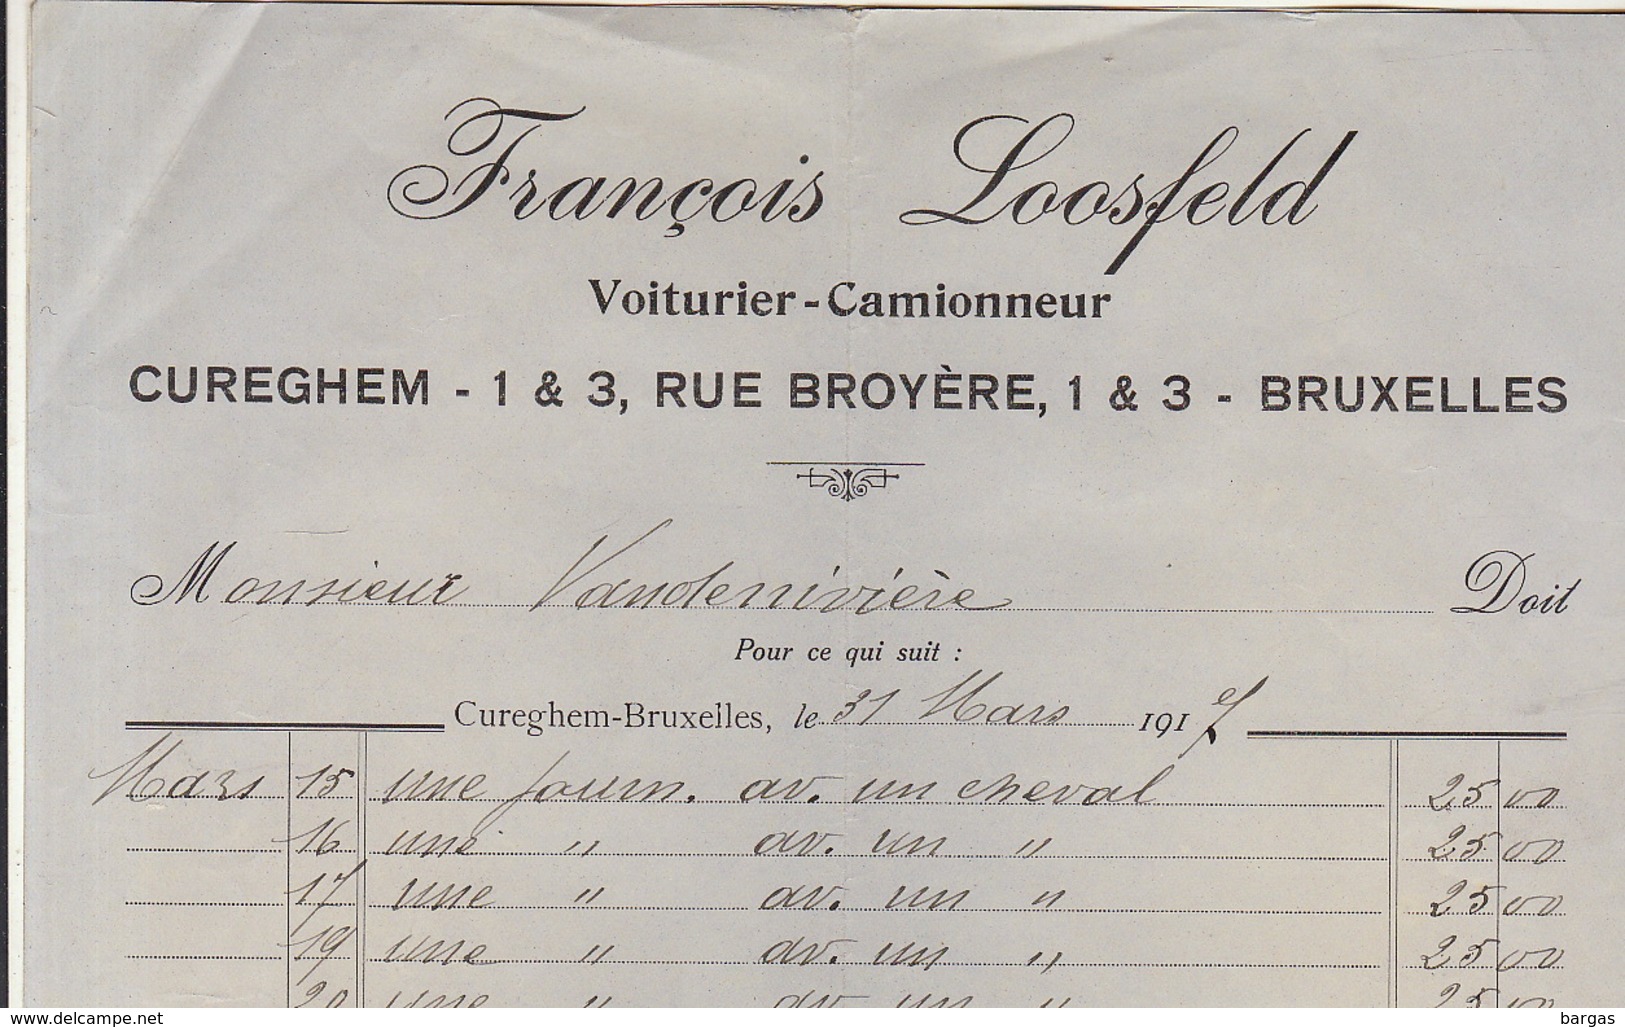 François Loosfeld
Voiturier-Camionneur
CUREGHEM - 1 & 3, RUE BROYÈRE, 1 & 3 - BRUXELLES
Monsieur Vandenivière Doit
Pour ce qui suit :
Cureghem-Bruxelles, le 31 Mars 1917
Mars 15 une journ. av. un cheval 25 00
16 une " av. un " 25 00
17 une " av. un " 25 00
19 une " av. un " 25 00
20 une " av. un " 25 00
www.delcampe.net
bargas